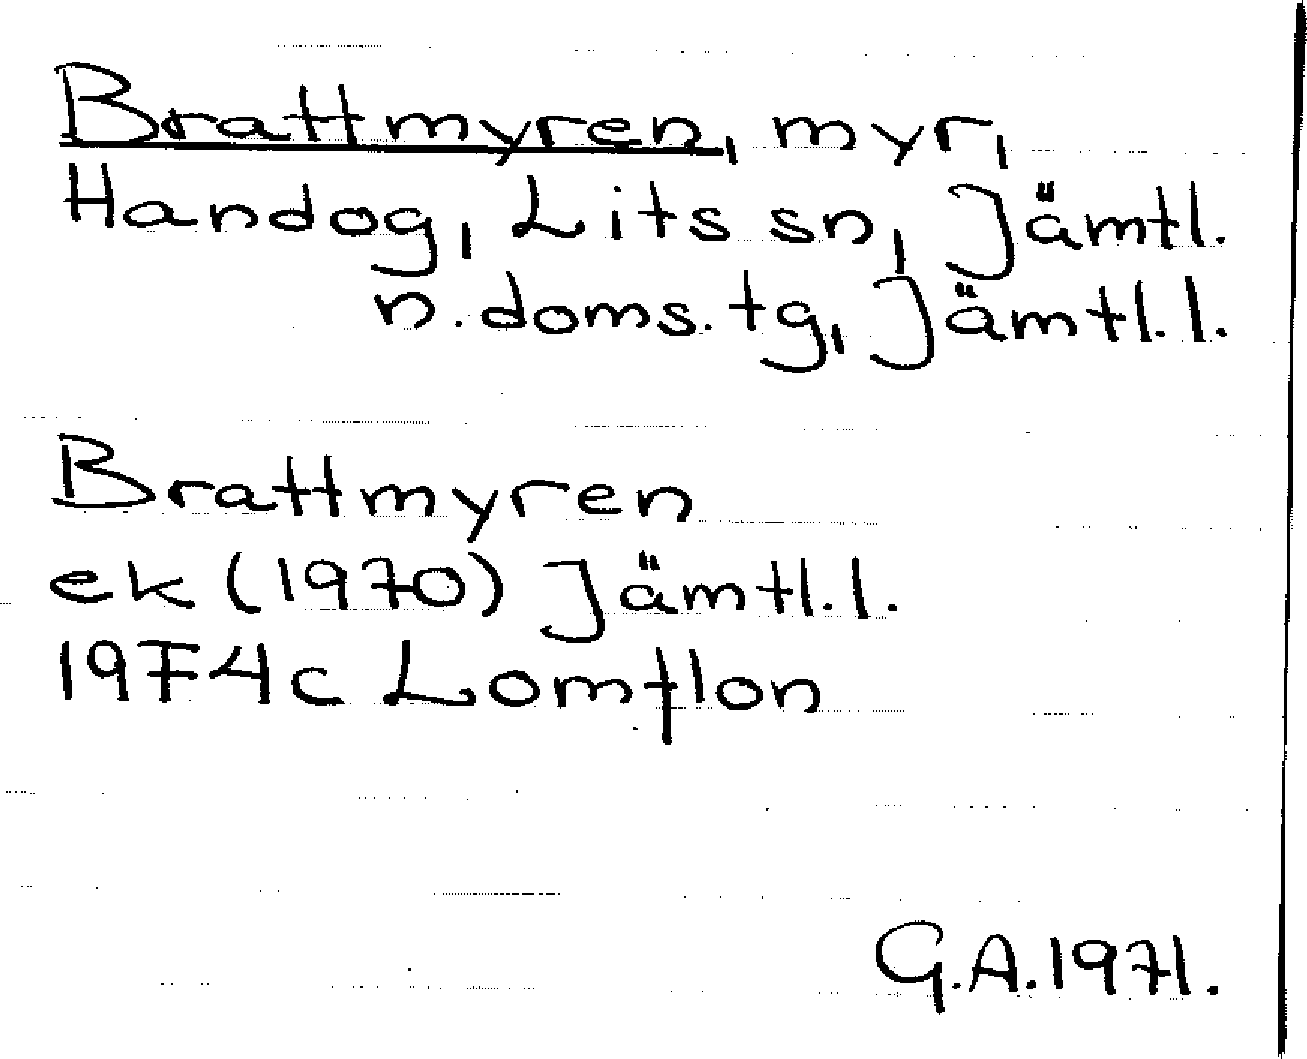 Brattmyren, myr,
Handog, Lits sn, Jämtl.
n. doms. tg, Jämtl. l.
Brattmyren
ek (1970) Jämtl. l.
19F4c Lomflon
G.A. 1971.